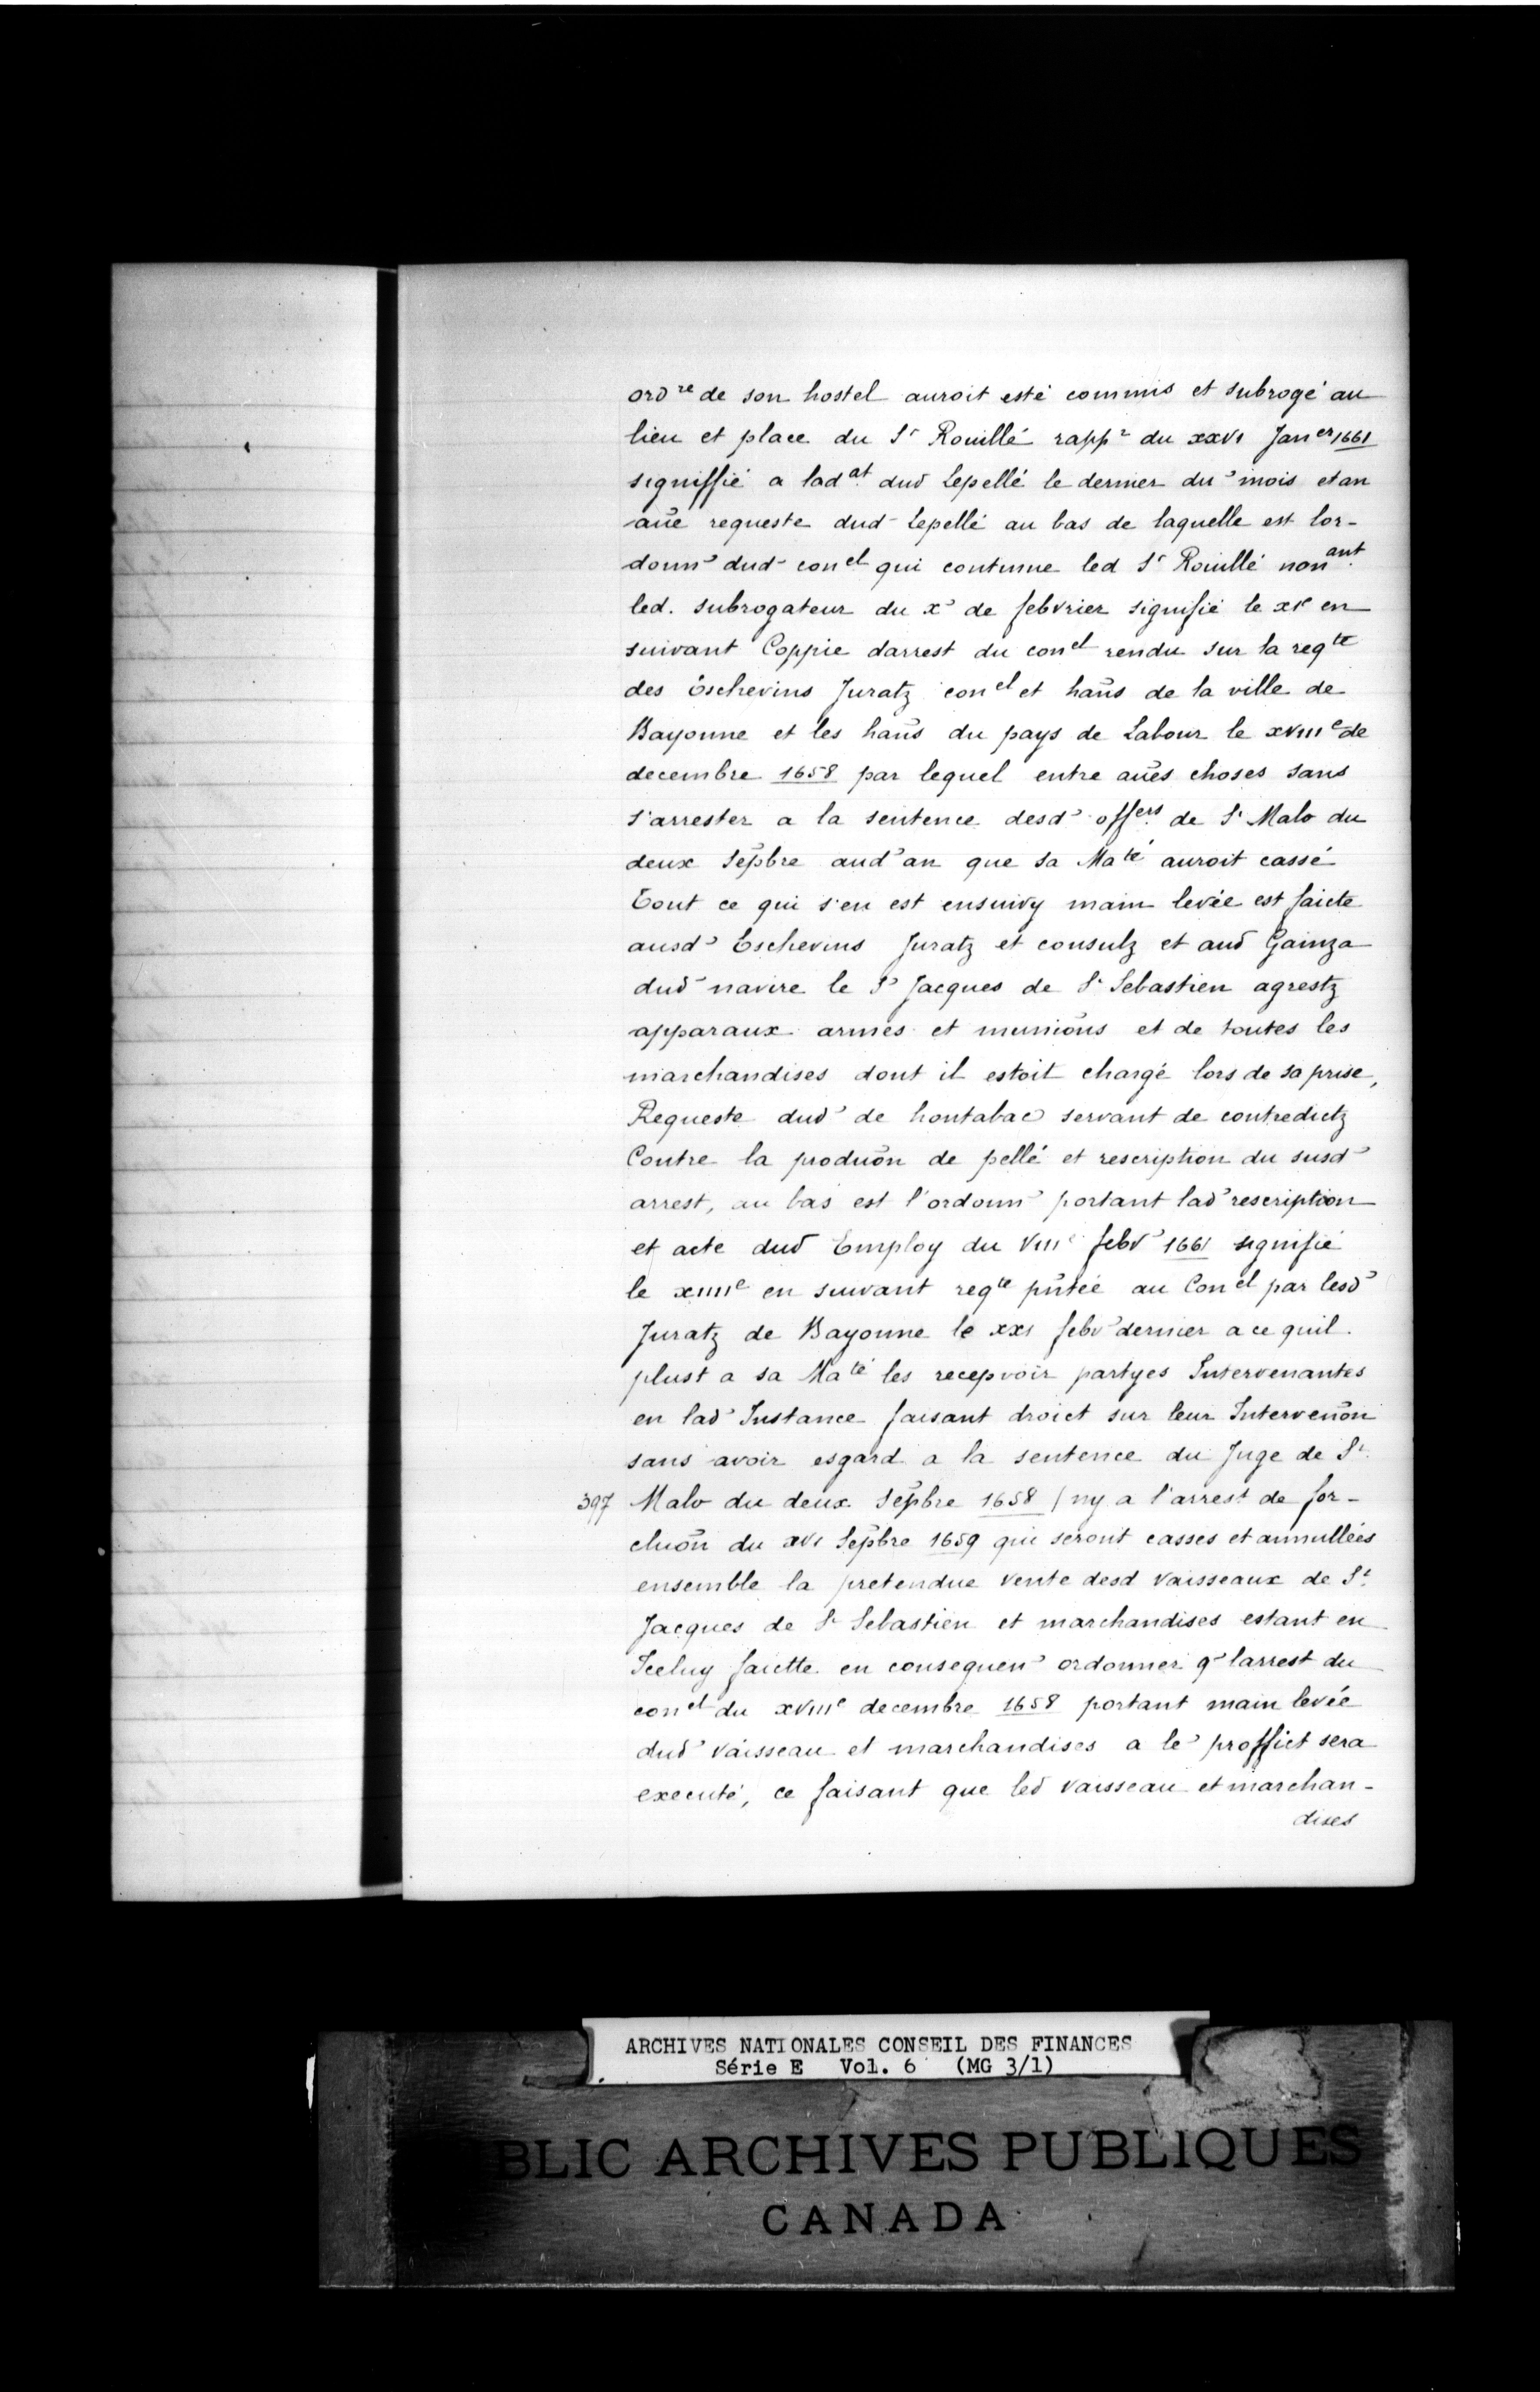 ordre de son hostel auroit esté commis et subrogé au
lieu et place du Sr Rouillé rappr du xxvi Janer 1661
signiffié a ladat dud Lepellé le dernier du mois et an
aūe requeste dud Lepellé au bas de laquelle est lor-
donn dud conel qui continue led Sr Rouillé nonant.
led. subrogateur du x de febvrier signifié le xie en
suivant Coppie darrest du conel rendu sur la reqte
des Eschevins Juratz conel et hans de la ville de
Bayonne et les hans du pays de Labour le xviiie de
decembre 1658 par lequel entre aūes choses sans
s'arrester a la sentence desd offers de St Malo du
deux Sepbre aud an que sa Maté auroit cassé
Tout ce qui s'en est ensuivy main levée est faicte
ausd Eschevins Juratz et consulz et aud Gainza
dud navire le St Jacques de St Sebastien agrestz
apparaux armes et munions et de toutes les
marchandises dont il estoit chargé lors de sa prise,
Requeste dud de hontabac servant de contredictz
Contre la produōn de pellé et rescription du susd
arrest, au bas est l'ordonn portant lad rescription
et acte dud Employ du viiie febv 1661 signifié
le xiiiie en suivant reqte pntée au Conel par lesd
Juratz de Bayonne le xxi febv dernier a ce quil
plust a sa Maté les recepvoir partyes Intervenantes
en lad Instance faisant droict sur leur Intervenōn
sans avoir esgard a la sentence du Juge de St
397 Malo du deux Sepbre 1658 / ny a l'arrest de for-
cluōn du xvi Sepbre 1659 qui seront casses et annullées
ensemble la pretendue vente desd vaisseaux de St
Jacques de St Sebastien et marchandises estant en
Iceluy faictte en consequen ordonner q larrest du
conel du xviiie decembre 1658 portant main levée
dud vaisseau et marchandises a le proffict sera
executé, ce faisant que led vaisseau et marchan-
dises
ARCHIVES NATIONALES CONSEIL DES FINANCES
Série E Vol. 6 (MG 3/1)
BLIC ARCHIVES PUBLIQUES
CANADA